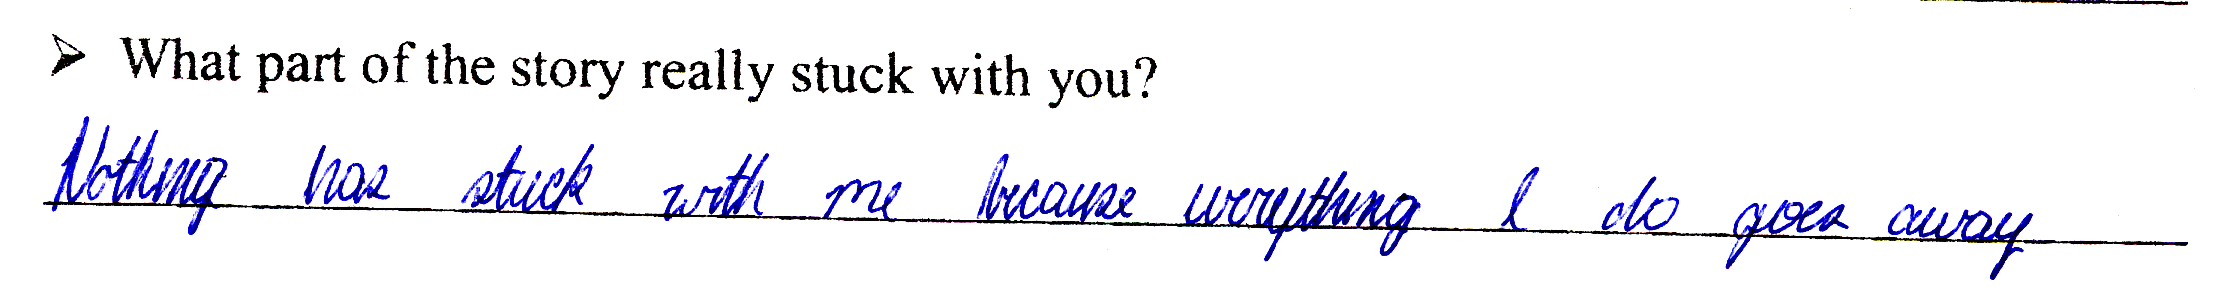 ➢ What part of the story really stuck with you?
Nothing has stuck with me because everything I do goes away